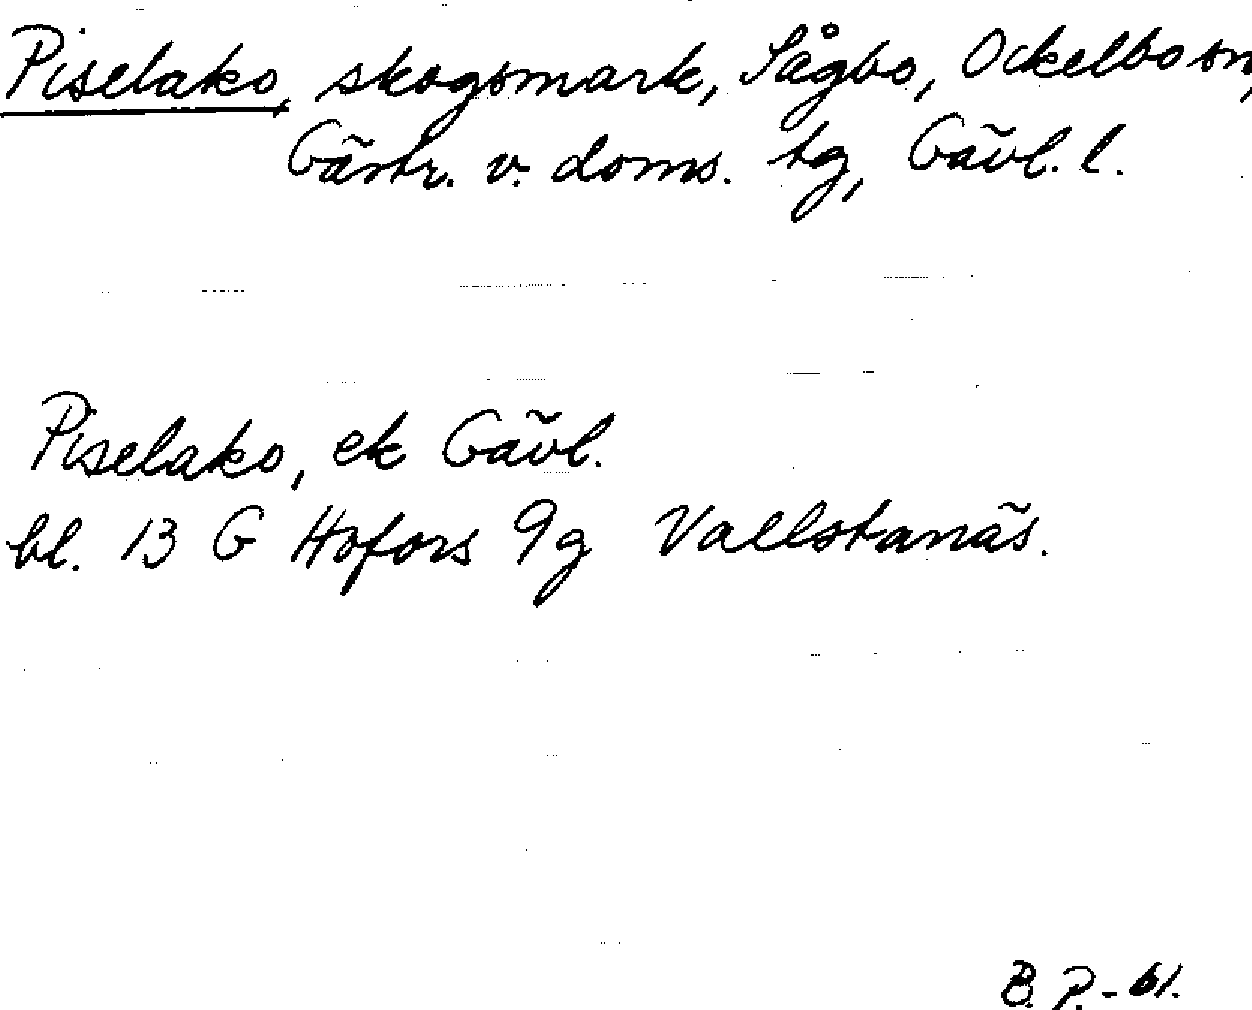 Piselako, skogsmark, Sågbo, Ockelbo sn,
Gästr. v. doms. tg, Gävl. l.
Piselako, ek Gävl.
bl. 13 G Hofors 9g Vallstanäs.
B. P. - 61.